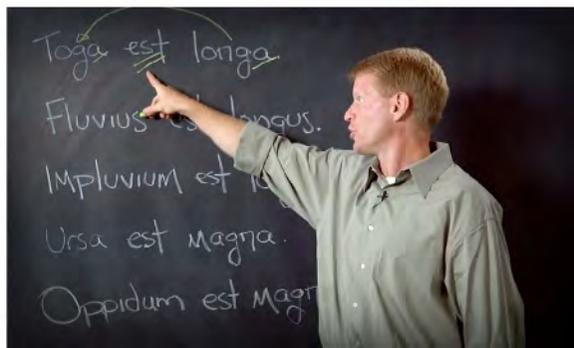 Toga est longa.
Fluvius est longus.
Impluvium est
Ursa est magna.
Oppidum est